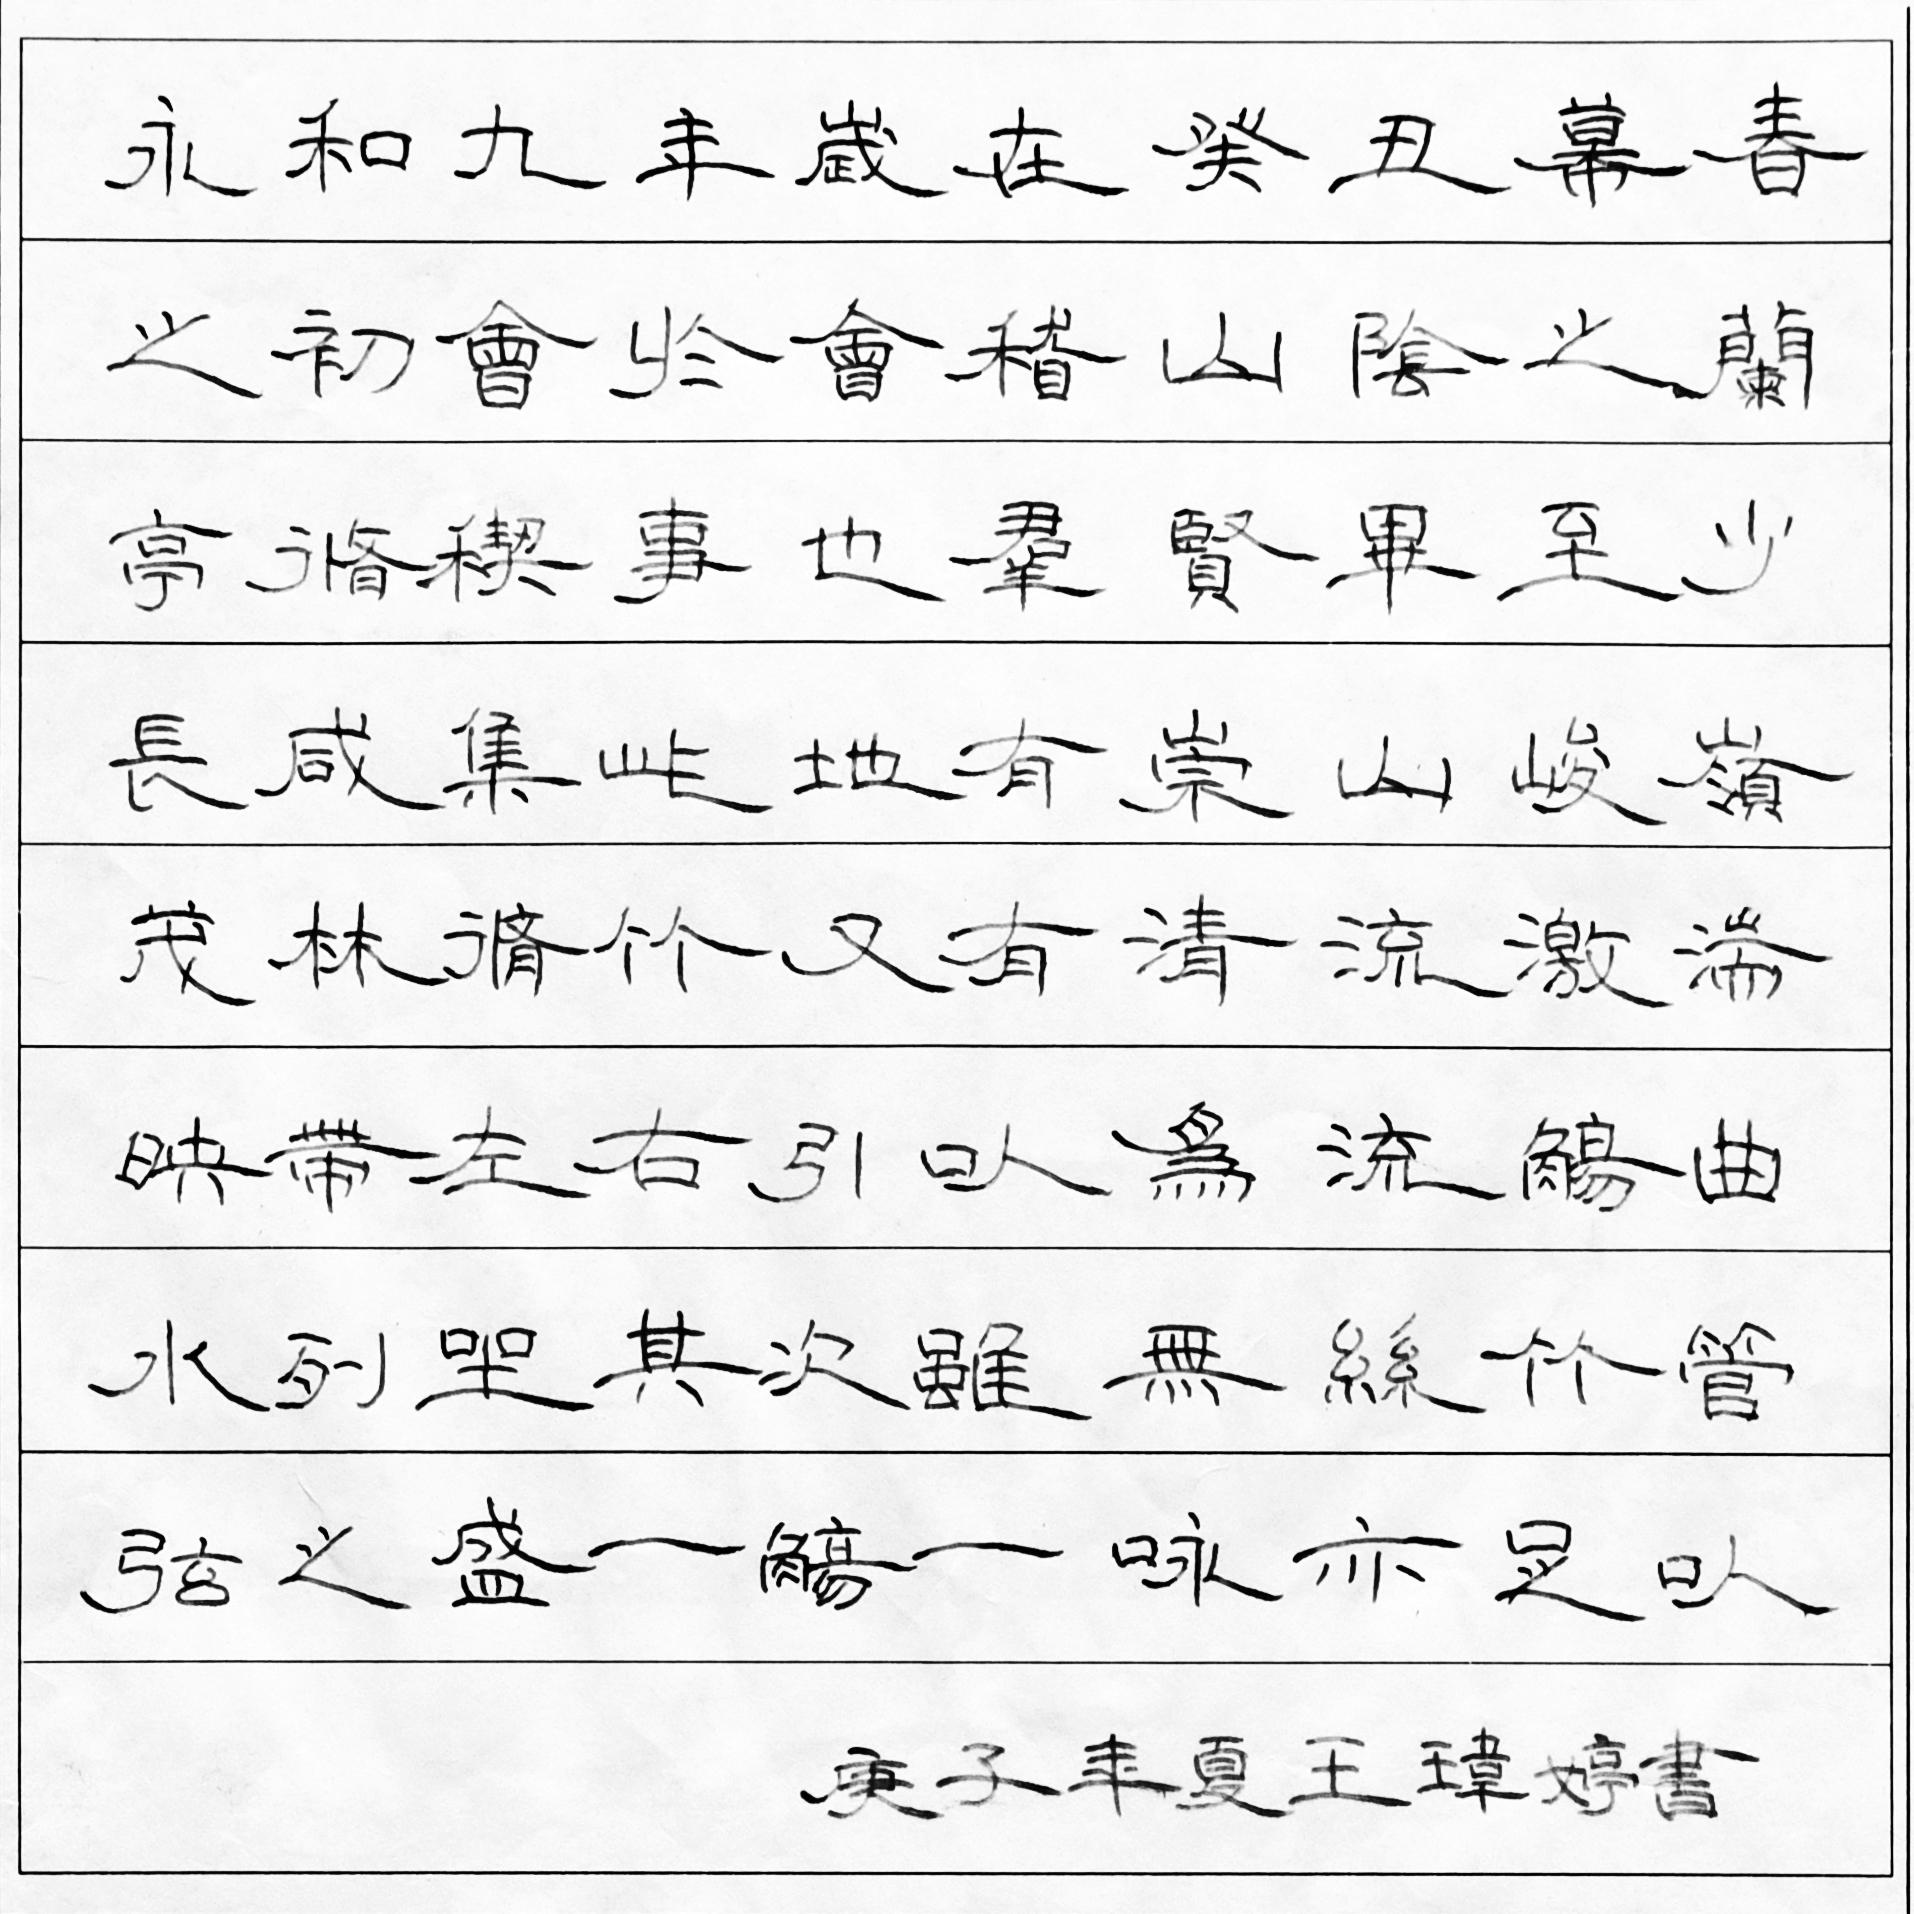 永和九年歲在癸丑暮春
之初會於會稽山陰之蘭
亭脩稧事也羣賢畢至少
長咸集此地有崇山峻嶺
茂林脩竹又有清流激湍
映帶左右引以為流觴曲
水列坐其次雖無絲竹管
弦之盛一觴一咏亦足以
庚子年夏王瑋婷書